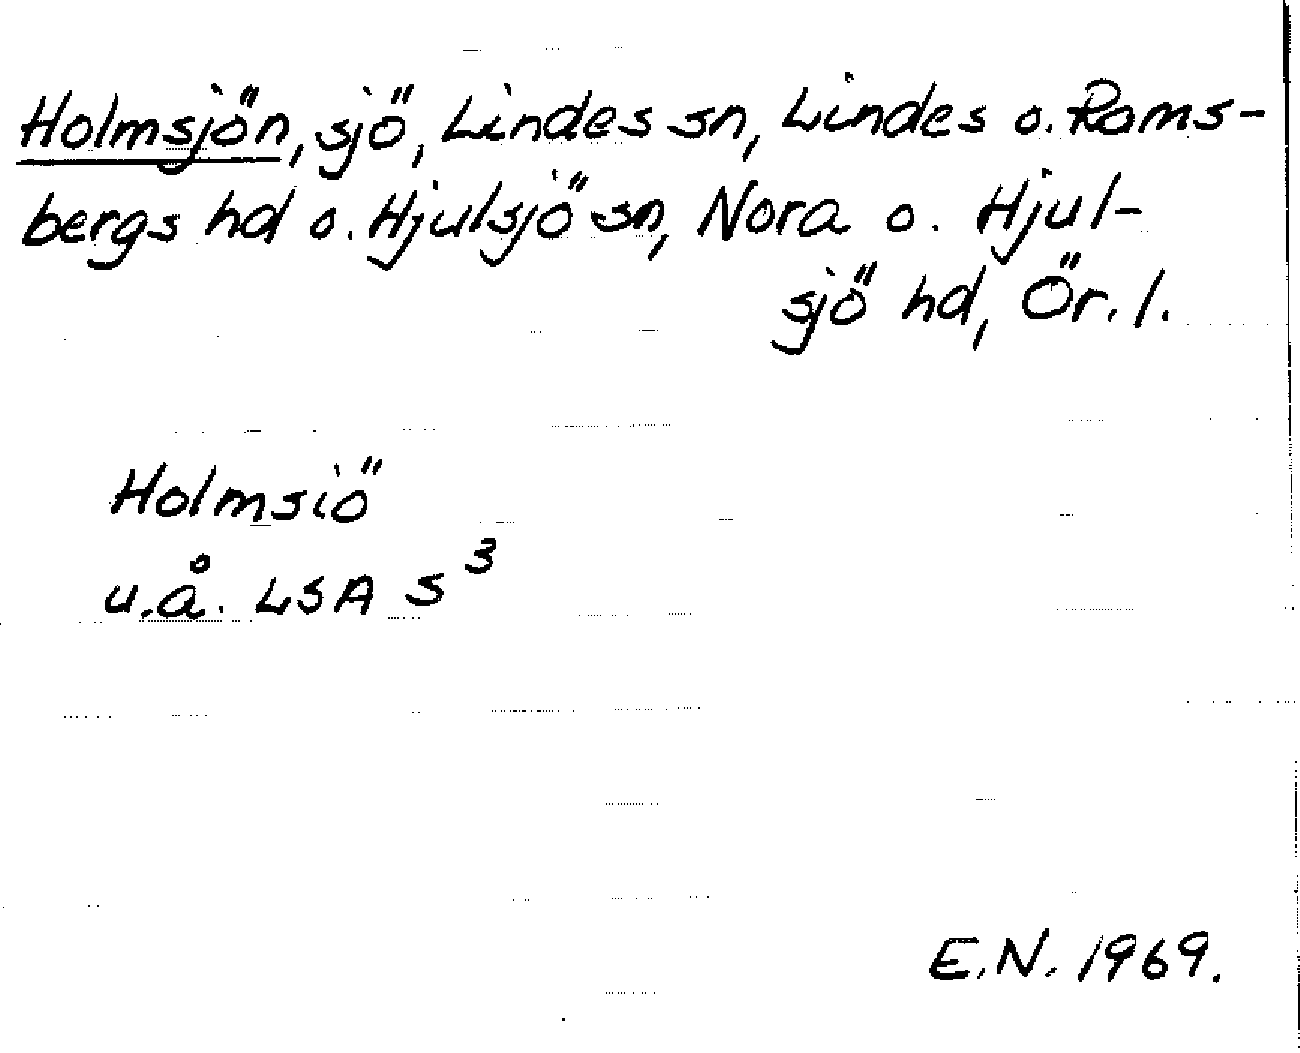 Holmsjön, sjö, Lindes sn, Lindes o. Rams-
bergs hd o. Hjulsjö sn, Nora o. Hjul-
sjö hd, Ör. l.
Holmsiö
u.å. LSA S³
E.N. 1969.